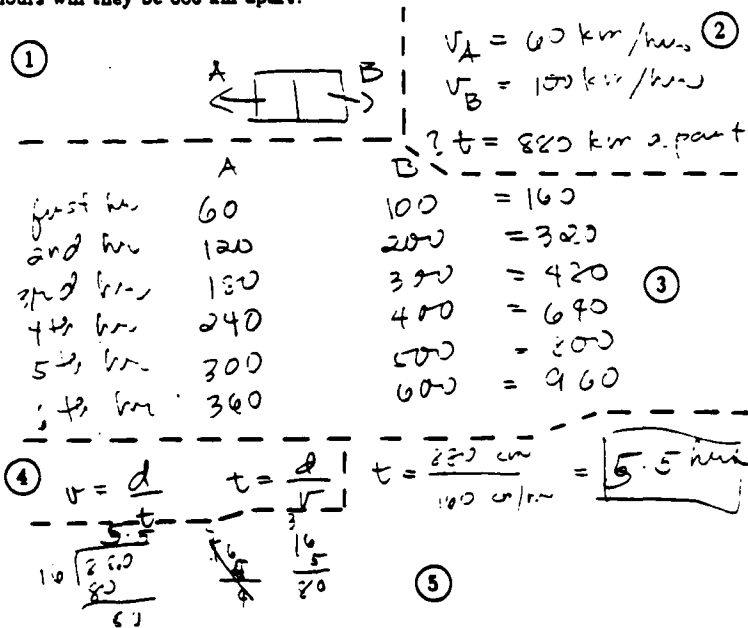 hours will they be 880 km apart?
①
A B
②
v_A = 60 km/hr
v_B = 100 km/hr
? t = 880 km apart
A B
first hr 60 100 = 160
2nd hr 120 200 = 320
3rd hr 180 300 = 480
4th hr 240 400 = 640
5th hr 300 500 = 800
th hr 360 600 = 960
③
④
v = d/t
t = d/v
t = 880 km / 160 km/hr = 5.5 hrs
5.5
16 880
80
80
16
5
80
⑤